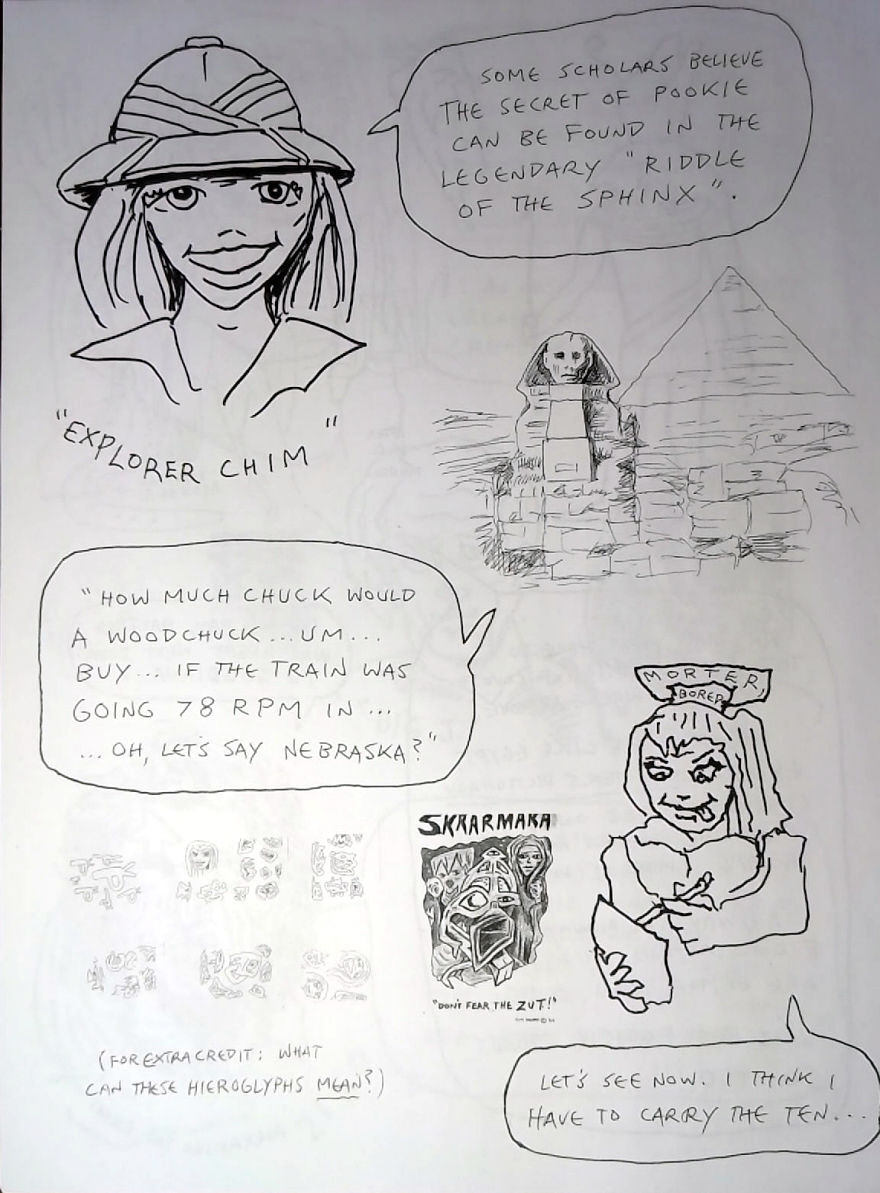 SOME SCHOLARS BELIEVE
THE SECRET OF POOKIE
CAN BE FOUND IN THE
LEGENDARY "RIDDLE
OF THE SPHINX".
"EXPLORER CHIM"
"HOW MUCH CHUCK WOULD
A WOODCHUCK...UM...
BUY... IF THE TRAIN WAS
GOING 78 RPM IN...
...OH, LET'S SAY NEBRASKA?"
MORTER,
BORED
SKRARMAKA
"DON'T FEAR THE ZUT!"
(FOR EXTRA CREDIT: WHAT
CAN THESE HIEROGLYPHS MEAN?)
LET'S SEE NOW. I THINK I
HAVE TO CARRY THE TEN...